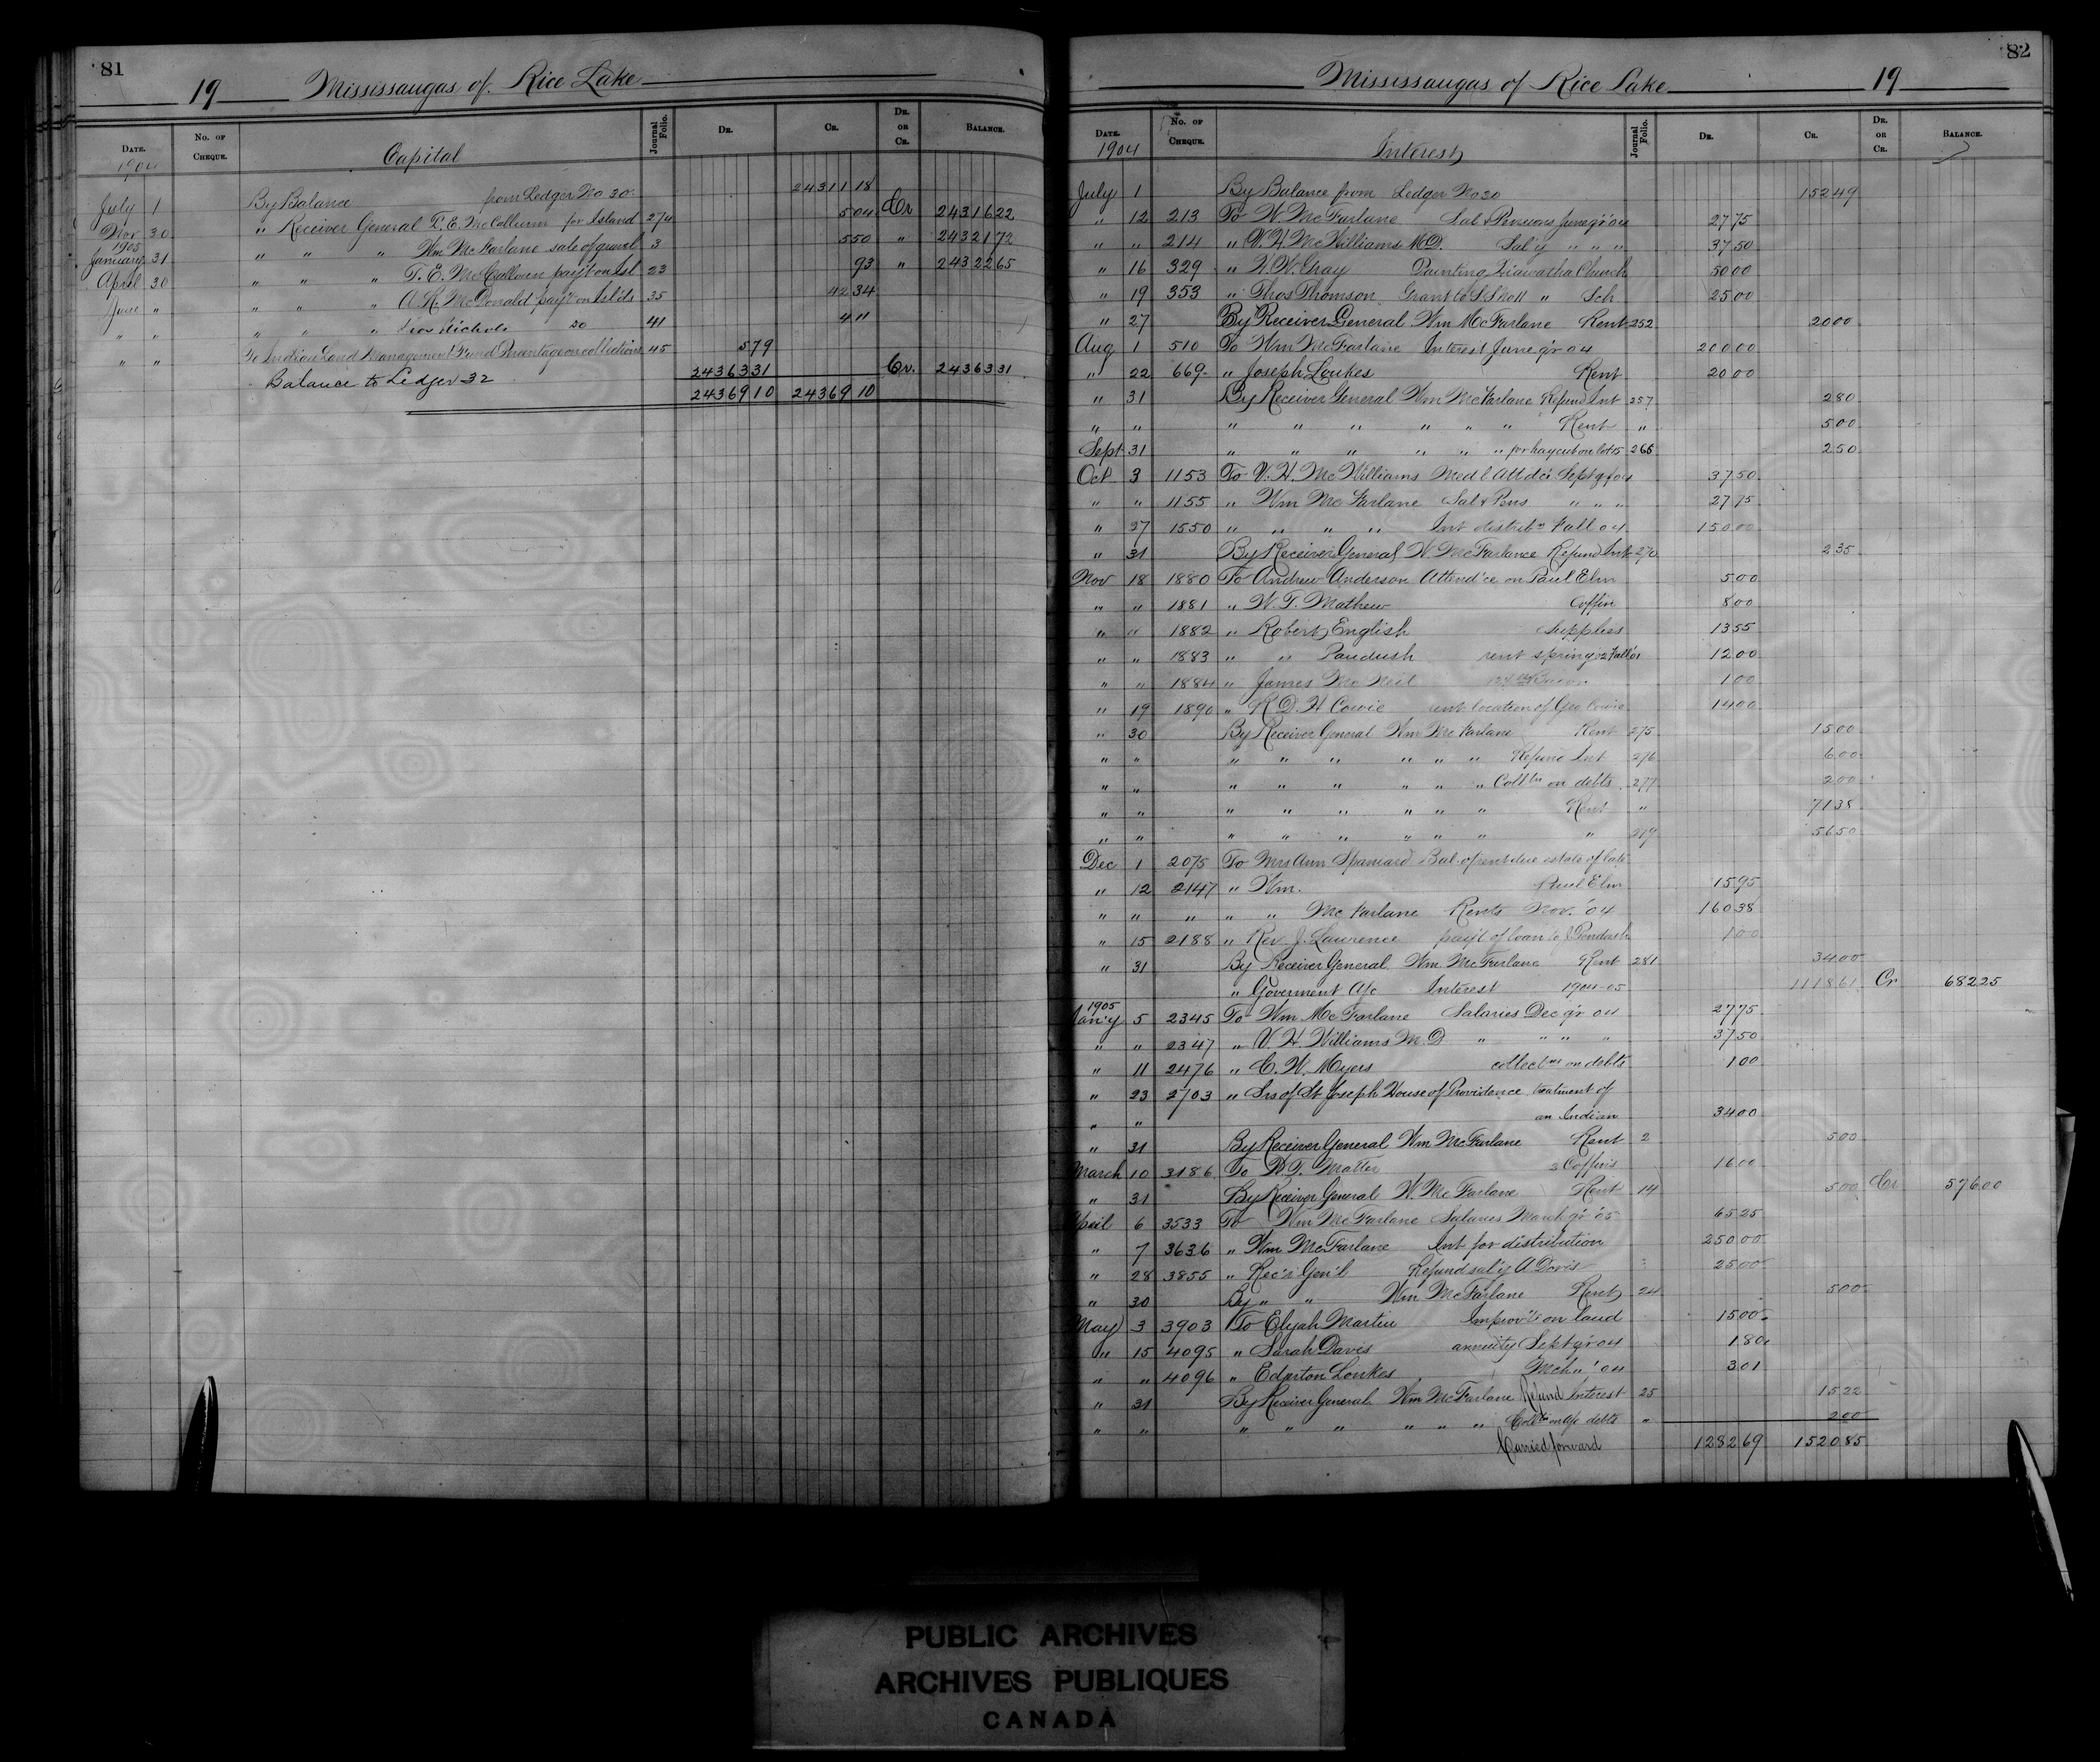 81
19 Mississaugas of Rice Lake
DATE. No. OF CHEQUE. Capital Journal Folio. DR. CR. DR. OR CR. BALANCE.
1904
July 1 By Balance from Ledger No 30 24311 18
Nov 30 " Receiver General T. E. McCollum for Island 274 5 04 Cr 24316 22
1905
January 31 " " " Wm McFarlane sale of gravel 3 5 50 " 24321 72
April 30 " " " T. E. McCullom pay't on Isl 23 93 " 24322 65
June " " " " A. R. McDonald pay't on Isl'ds 35 42 34
" " " " " Nichols 20 41 4 11
" " To Indian Land Management Fund Percentage on collections 45 5 79
Balance to Ledger 32 24363 31 Cr. 24363 31
24369 10 24369 10
82
Mississaugas of Rice Lake 19
DATE. No. OF CHEQUE. Interest Journal Folio. DR. CR. DR. OR CR. BALANCE.
1904
July 1 By Balance from Ledger No 30 152 49
" 12 213 To W. McFarlane Sal & Pensions June q'r 04 27 75
" " 214 " V. H. McWilliams M.D. Sal'y " " " 37 50
" 16 329 " W. W. Gray Painting Hiawatha Church 50 00
" 19 353 " Thos Thomson Grant to S. Shott " Sch 25 00
" 27 By Receiver General Wm McFarlane Rent 252 20 00
Aug 1 510 To Wm McFarlane Interest June q'r 04 200 00
" 22 669 " Joseph Loukes Rent 20 00
" 31 By Receiver General Wm McFarlane Refund Int 257 2 80
" " " " " " " " Rent " 5 00
Sept 31 " " " " " " for hay cut on lot 15 265 2 50
Oct 3 1153 To V. H. McWilliams Med'l Att'dce Sept q'r 04 37 50
" " 1155 " Wm McFarlane Sal & Pens " " " 27 75
" 27 1550 " " " " Int distrib'n Fall 04 150 00
" 31 By Receiver General W. McFarlane Refund Int 270 2 35
Nov 18 1880 To Andrew Anderson Attend'ce on Paul Elm 5 00
" " 1881 " W. T. Mathew Coffin 8 00
" " 1882 " Robert English Supplies 13 55
" " 1883 " " Paudush rent spring 02 Fall 01 12 00
" " 1884 " James McNeil 1 00
" 19 1890 " R. D. H Cowie rent location of Geo Cowie 14 00
" 30 By Receiver General Wm McFarlane Rent 275 15 00
" " " " " " " " Refund Int 276 6 00
" " " " " " " " Coll'tn on debts 277 2 00
" " " " " " " " Rent " 71 38
" " " " " " " " " 279 56 50
Dec 1 2075 To Mrs Ann Spaniard Bal. of rent due estate of late
" 12 2147 " Wm. Paul Elm 15 95
" " " " " McFarlane Rents Nov. '04 160 38
" 15 2188 " Rev J. Laurence pay't of loan to J Paudash 1 00
" 31 By Receiver General Wm McFarlane Rent 281 34 00
" Goverment A/c Interest 1904-05 1118 61 Cr 682 25
1905
Jan'y 5 2345 To Wm McFarlane Salaries Dec q'r 04 27 75
" " 2347 " V. H Williams M. D " " " " 37 50
" 11 2476 " C. W. Myers collect'ns on debts 1 00
" 23 2703 " Srs of St Joseph House of Providence treatment of
" " an Indian 34 00
" 31 By Receiver General Wm McFarlane Rent 2 5 00
March 10 3186 To W. T. Matter 2 Coffins 16 00
" 31 By Receiver General W. McFarlane Rent 14 5 00 Cr 576 00
April 6 3533 To Wm McFarlane Salaries March q'r '05 65 25
" 7 3636 " Wm McFarlane Int for distribution 250 00
" 28 3855 " Rec'r Gen'l Refund sal'y A Davis 25 00
" 30 By " " Wm McFarlane Rent 24 5 00
May 3 3903 To Elijah Martin Improv'ts on land 15 00
" 15 4095 " Sarah Davis annuity Sept q'r 04 1 80
" " 4096 " Edgerton Loukes Mch " '04 3 01
" 31 By Receiver General Wm McFarlane Refund Interest 25 15 22
" " " " " " " " Coll'tn on a/c debts " 2 00
Carried forward 1282 69 1520 85
PUBLIC ARCHIVES
ARCHIVES PUBLIQUES
CANADA